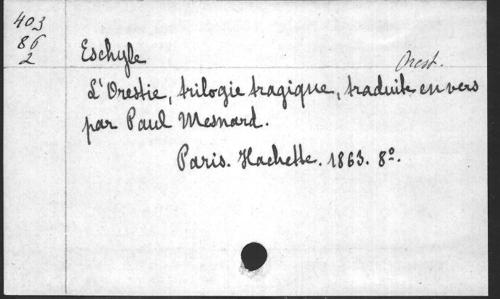 403
86
2
Eschyle
Orest.
L'Orestie, trilogie tragique, traduite en vers
par Paul Mesnard.
Paris. Hachette. 1863. 8º.